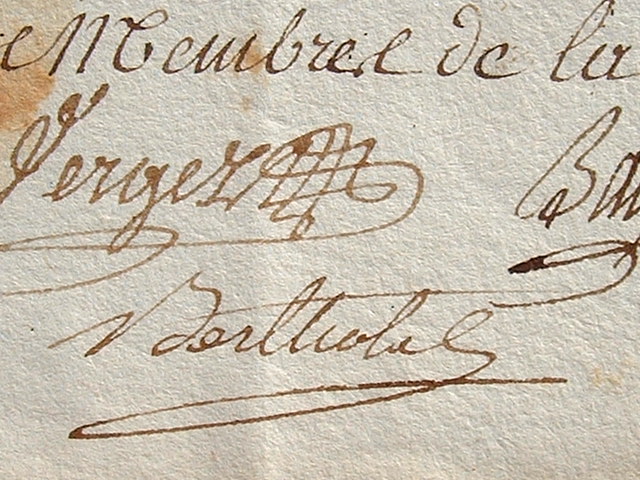 Membre de la
Verger Ba
Bertholet